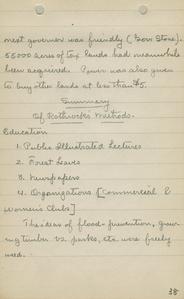 next governor was friendly (Gov. Stone).
55000 acres of tax lands had meanwhile
been acquired. Power was also given
to buy other lands at less than $5.
Summary
Of Rothrock's Methods.
Education
1. Public Illustrated Lectures
2. Forest Leaves
3. Newspapers
4. Organizations [Commercial &
Women's Clubs]
The ideas of flood-prevention, grow-
ing timber vs. parks, etc. were freely
used.
38